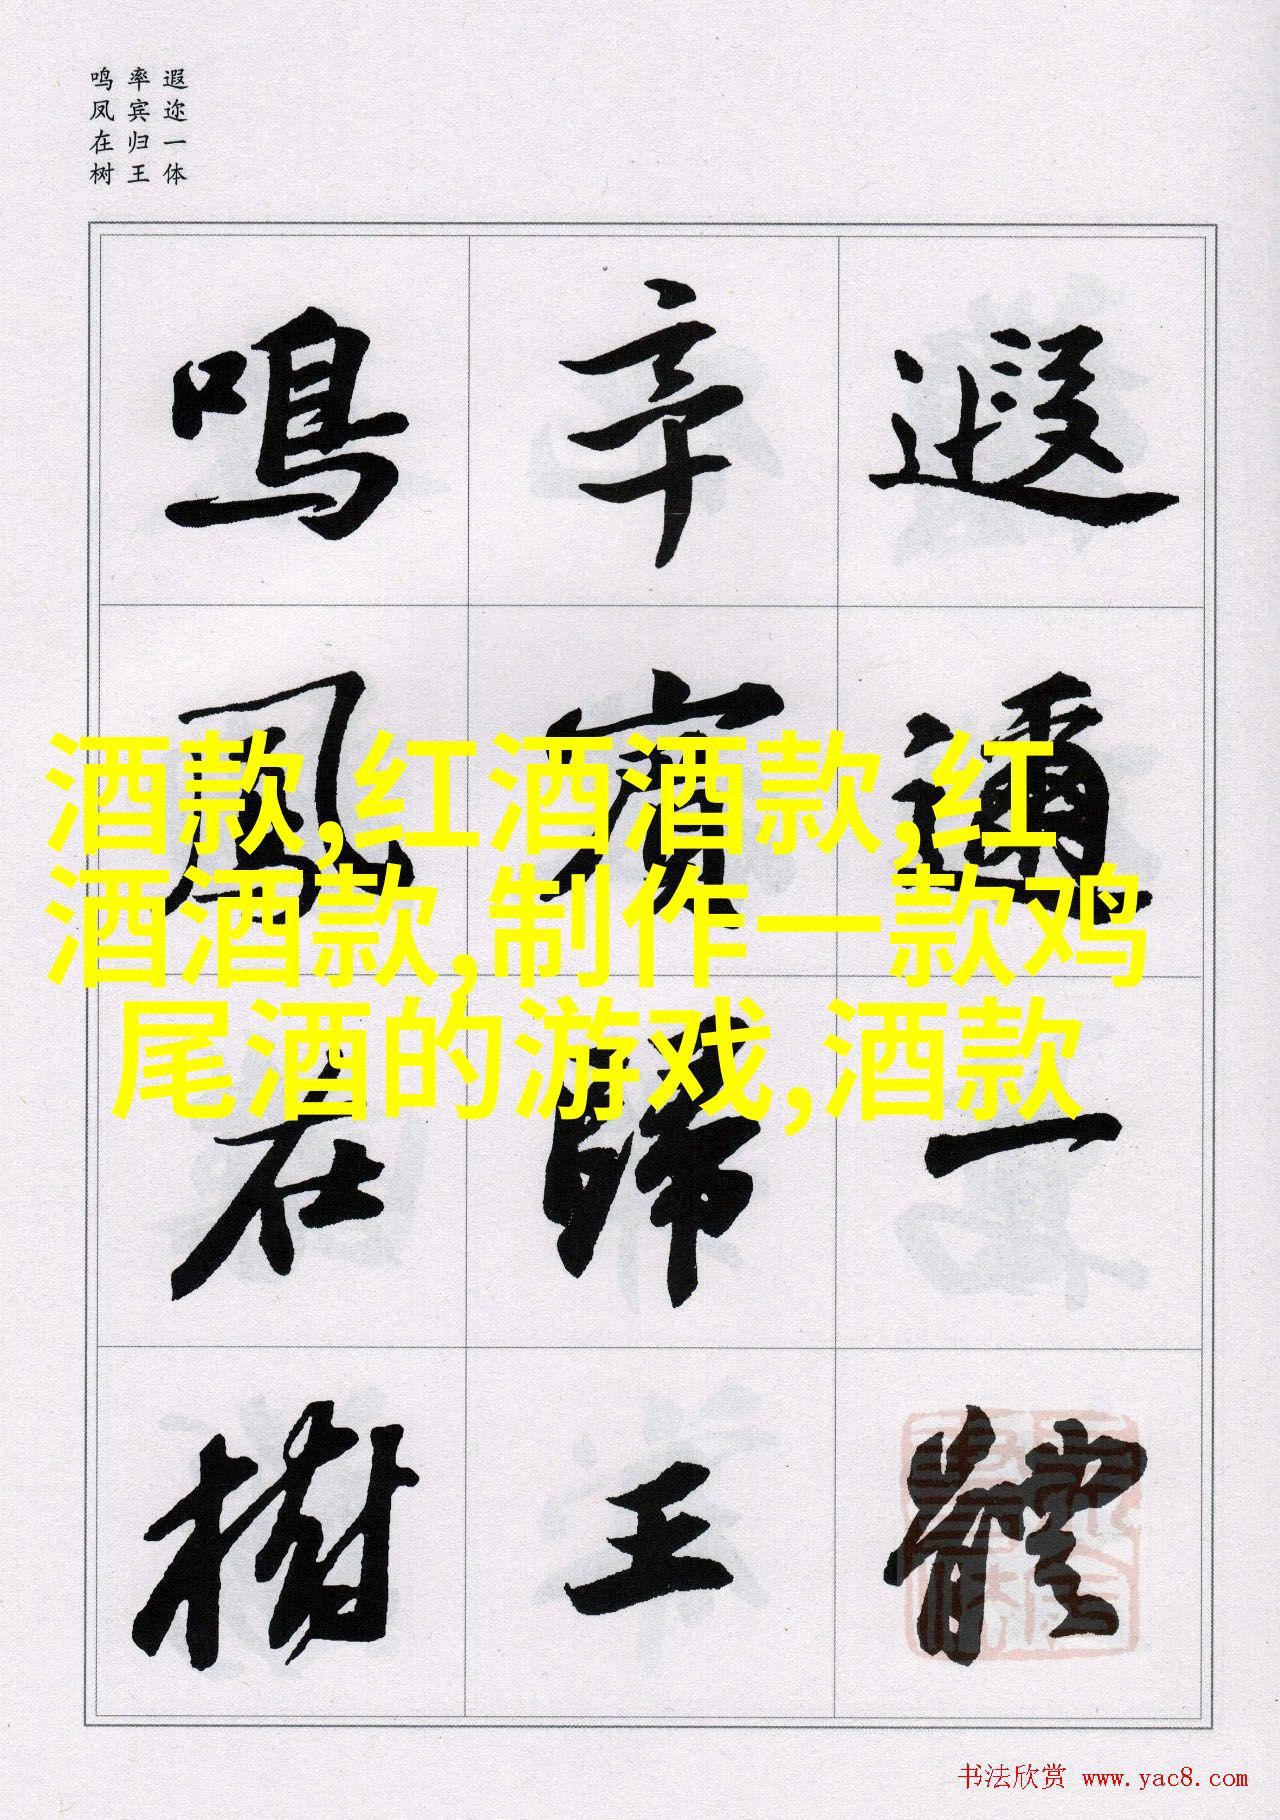 遐迩一体
率宾归王
鸣凤在树
遐邇一體
率賓歸王
鳴鳳在樹
酒款,红酒酒款,红
酒酒款,制作一款鸡
尾酒的游戏,酒款
书法欣赏 www.yac8.com